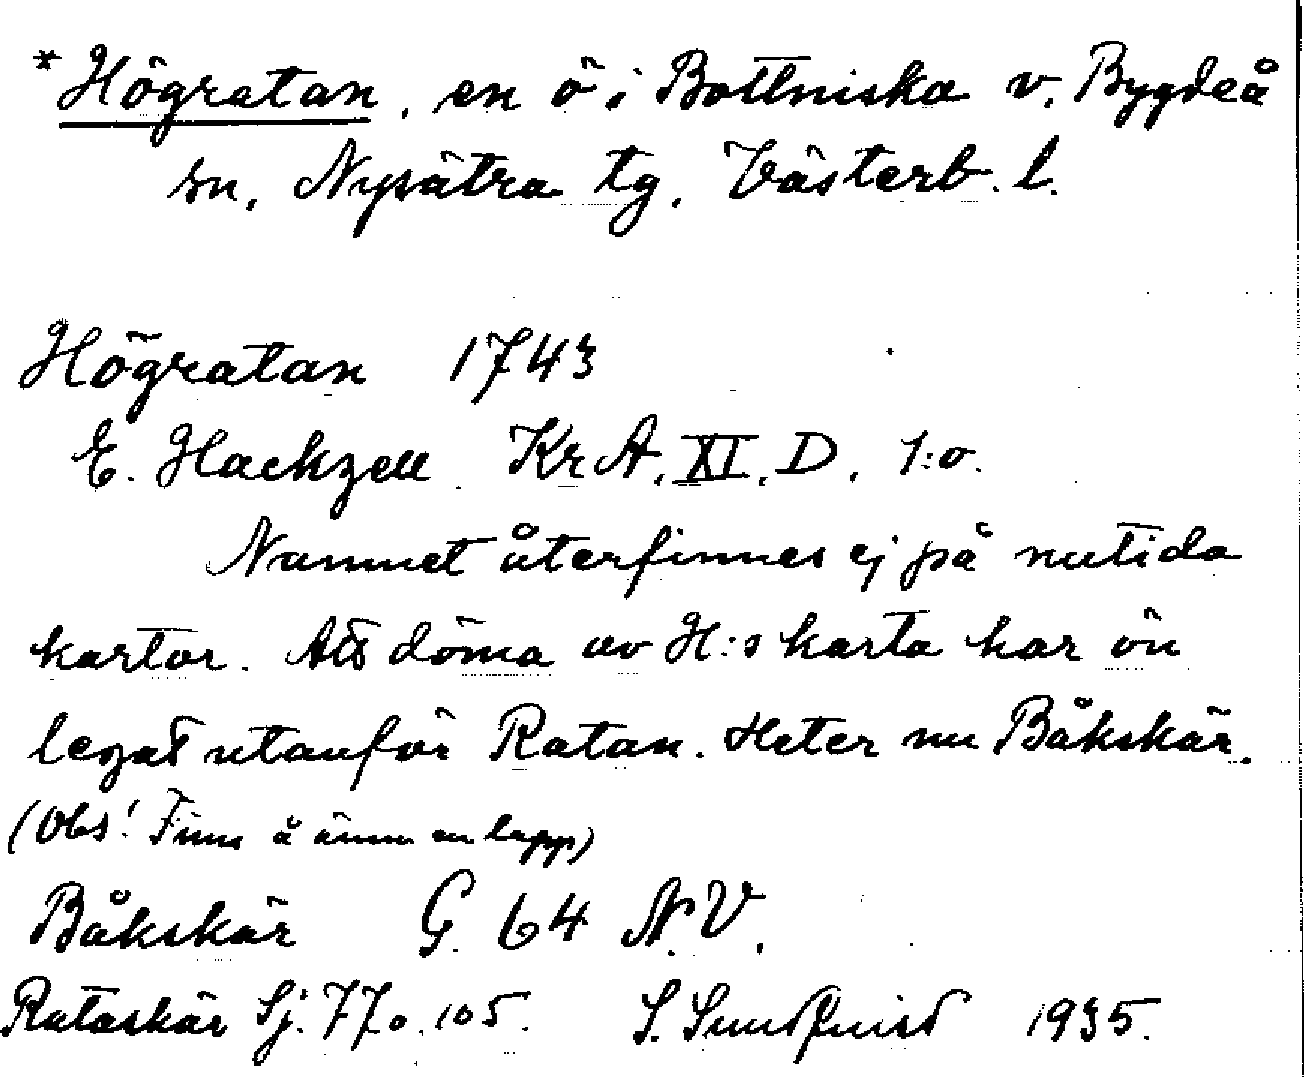 * Högratan, en ö i Bottniska v. Bygdeå
sn, Nysätra tg, Västerb. l.
Högratan 1743
E. Hackzell KrA, XI, D, 1:o.
Namnet återfinnes ej på nutida
kartor. Att döma av H:s karta har ön
legat utanför Ratan. Heter nu Båkskär.
(Obs! Finns å ännu en lapp)
Båkskär G. 64 N.V.
Rataskär Sj. 77o. 105. S. Sundquist 1935.